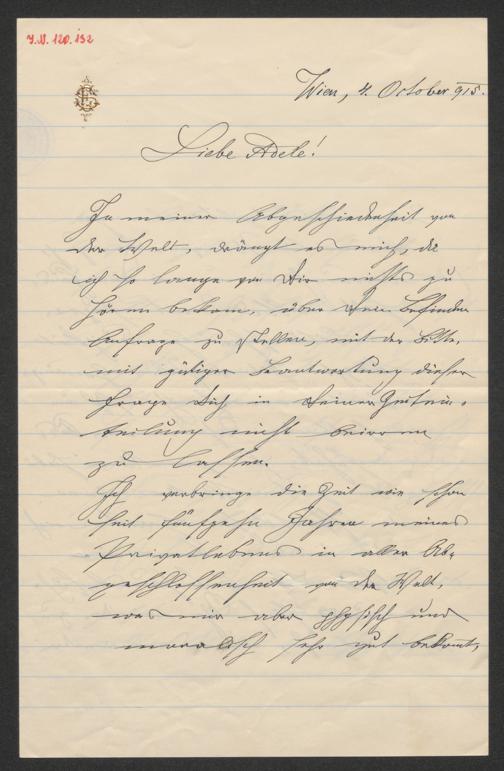 J.N. 120.132
Wien, 4. October 915.
Liebe Adele!
In meiner Abgeschiedenheit von
der Welt, drängt es mich, da
ich so lange von Dir nichts zu
hören bekam, über Dein Befinden
Anfrage zu stellen, mit der Bitte,
mit gütiger Beantwortung dieser
Frage Dich in Deiner Zeitein-
teilung nicht beirren
zu lassen.
Ich verbringe die Zeit wie schon
seit fünfzehn Jahren meines
Privatlebens in aller Ab-
geschlossenheit von der Welt,
was mir aber physisch und
moralisch sehr gut bekomt,